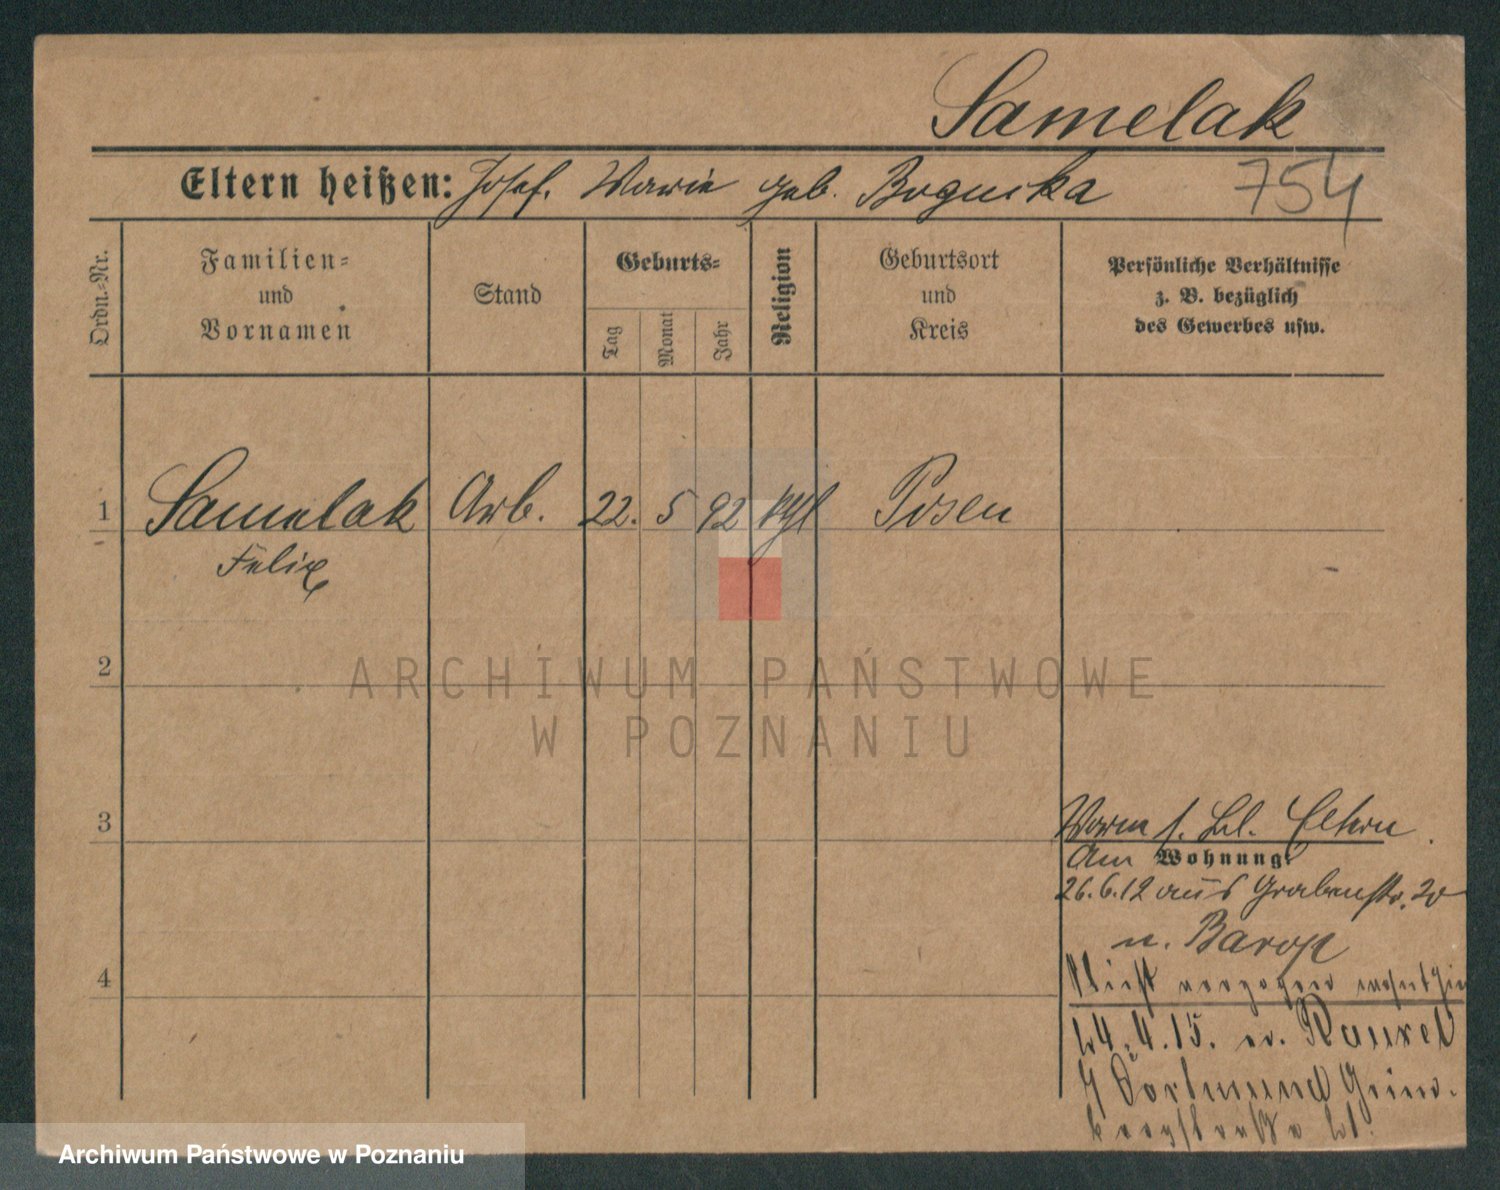 Samelak
Eltern heißen: Josef. Marie geb. Boguska
754
Ordn.=Nr.
Familien=
und
Vornamen
Stand
Geburts=
Tag
Monat
Jahr
Religion
Geburtsort
und
Kreis
Persönliche Verhältnisse
z. B. bezüglich
des Gewerbes usw.
1 Samelak Arb. 22. 5 92 kghl Posen
Felix
2
3
4
ARCHIWUM PAŃSTWOWE
W POZNANIU
Eltern
Am Wohnung:
26.6.12 aus Grabenstr. 20
n. Barop
Nicht verzogen
4.15. Rauxel
Dortmund
Archiwum Państwowe w Poznaniu